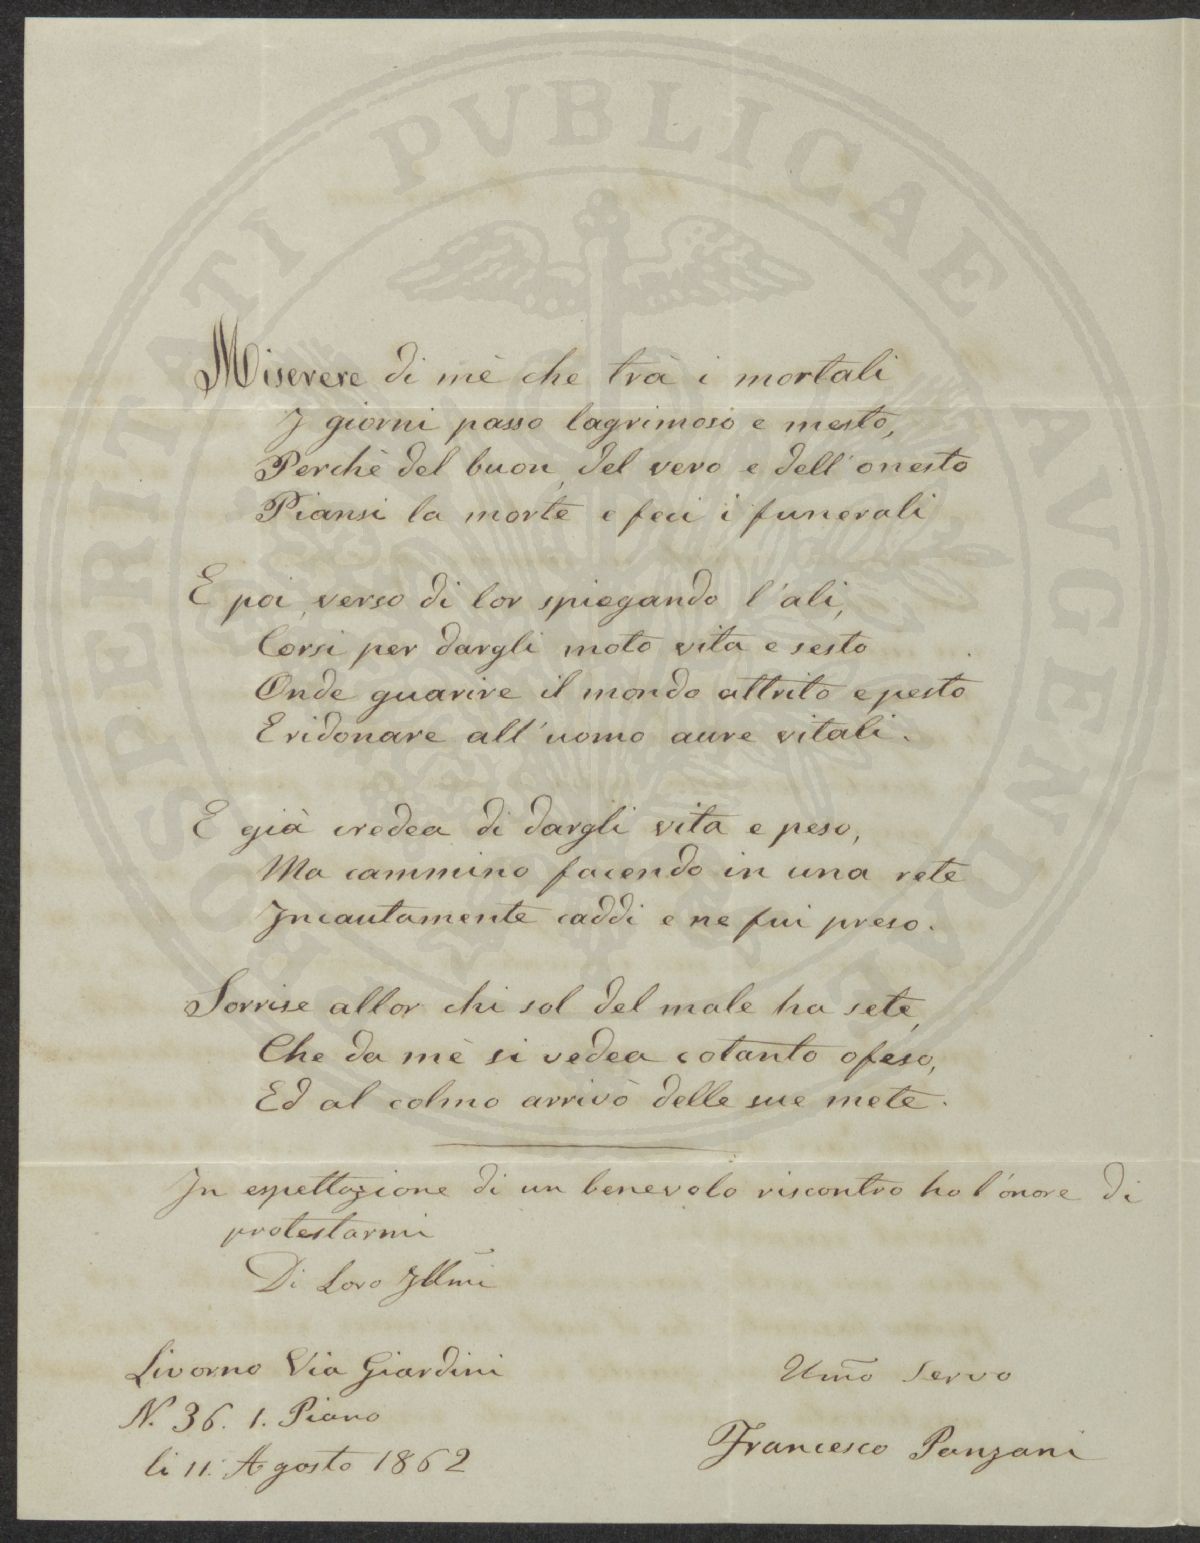 Miserere di mè che trà i mortali
I giorni passo lagrimoso e mesto,
Perchè del buon, del vero e dell'onesto
Piansi la morte e feci i funerali
E poi, verso di lor spiegando l'ali,
Corsi per dargli moto vita e sesto
Onde guarire il mondo attrito e pesto
E ridonare all'uomo aure vitali.
E già credea di dargli vita e peso,
Ma cammino facendo in una rete
Incautamente caddi e ne fui preso.
Sorrise allor chi sol del male ha sete,
Che da mè si vedea cotanto ofeso,
Ed al colmo arrivò delle sue mete.
In espettazione di un benevolo riscontro ho l'onore di
protestarmi
Di Loro Illmi
Livorno Via Giardini
N. 36. 1. Piano
li 11. Agosto 1862
Umo Servo
Francesco Panzani
PROSPERITATI PVBLICAE AVGENDAE